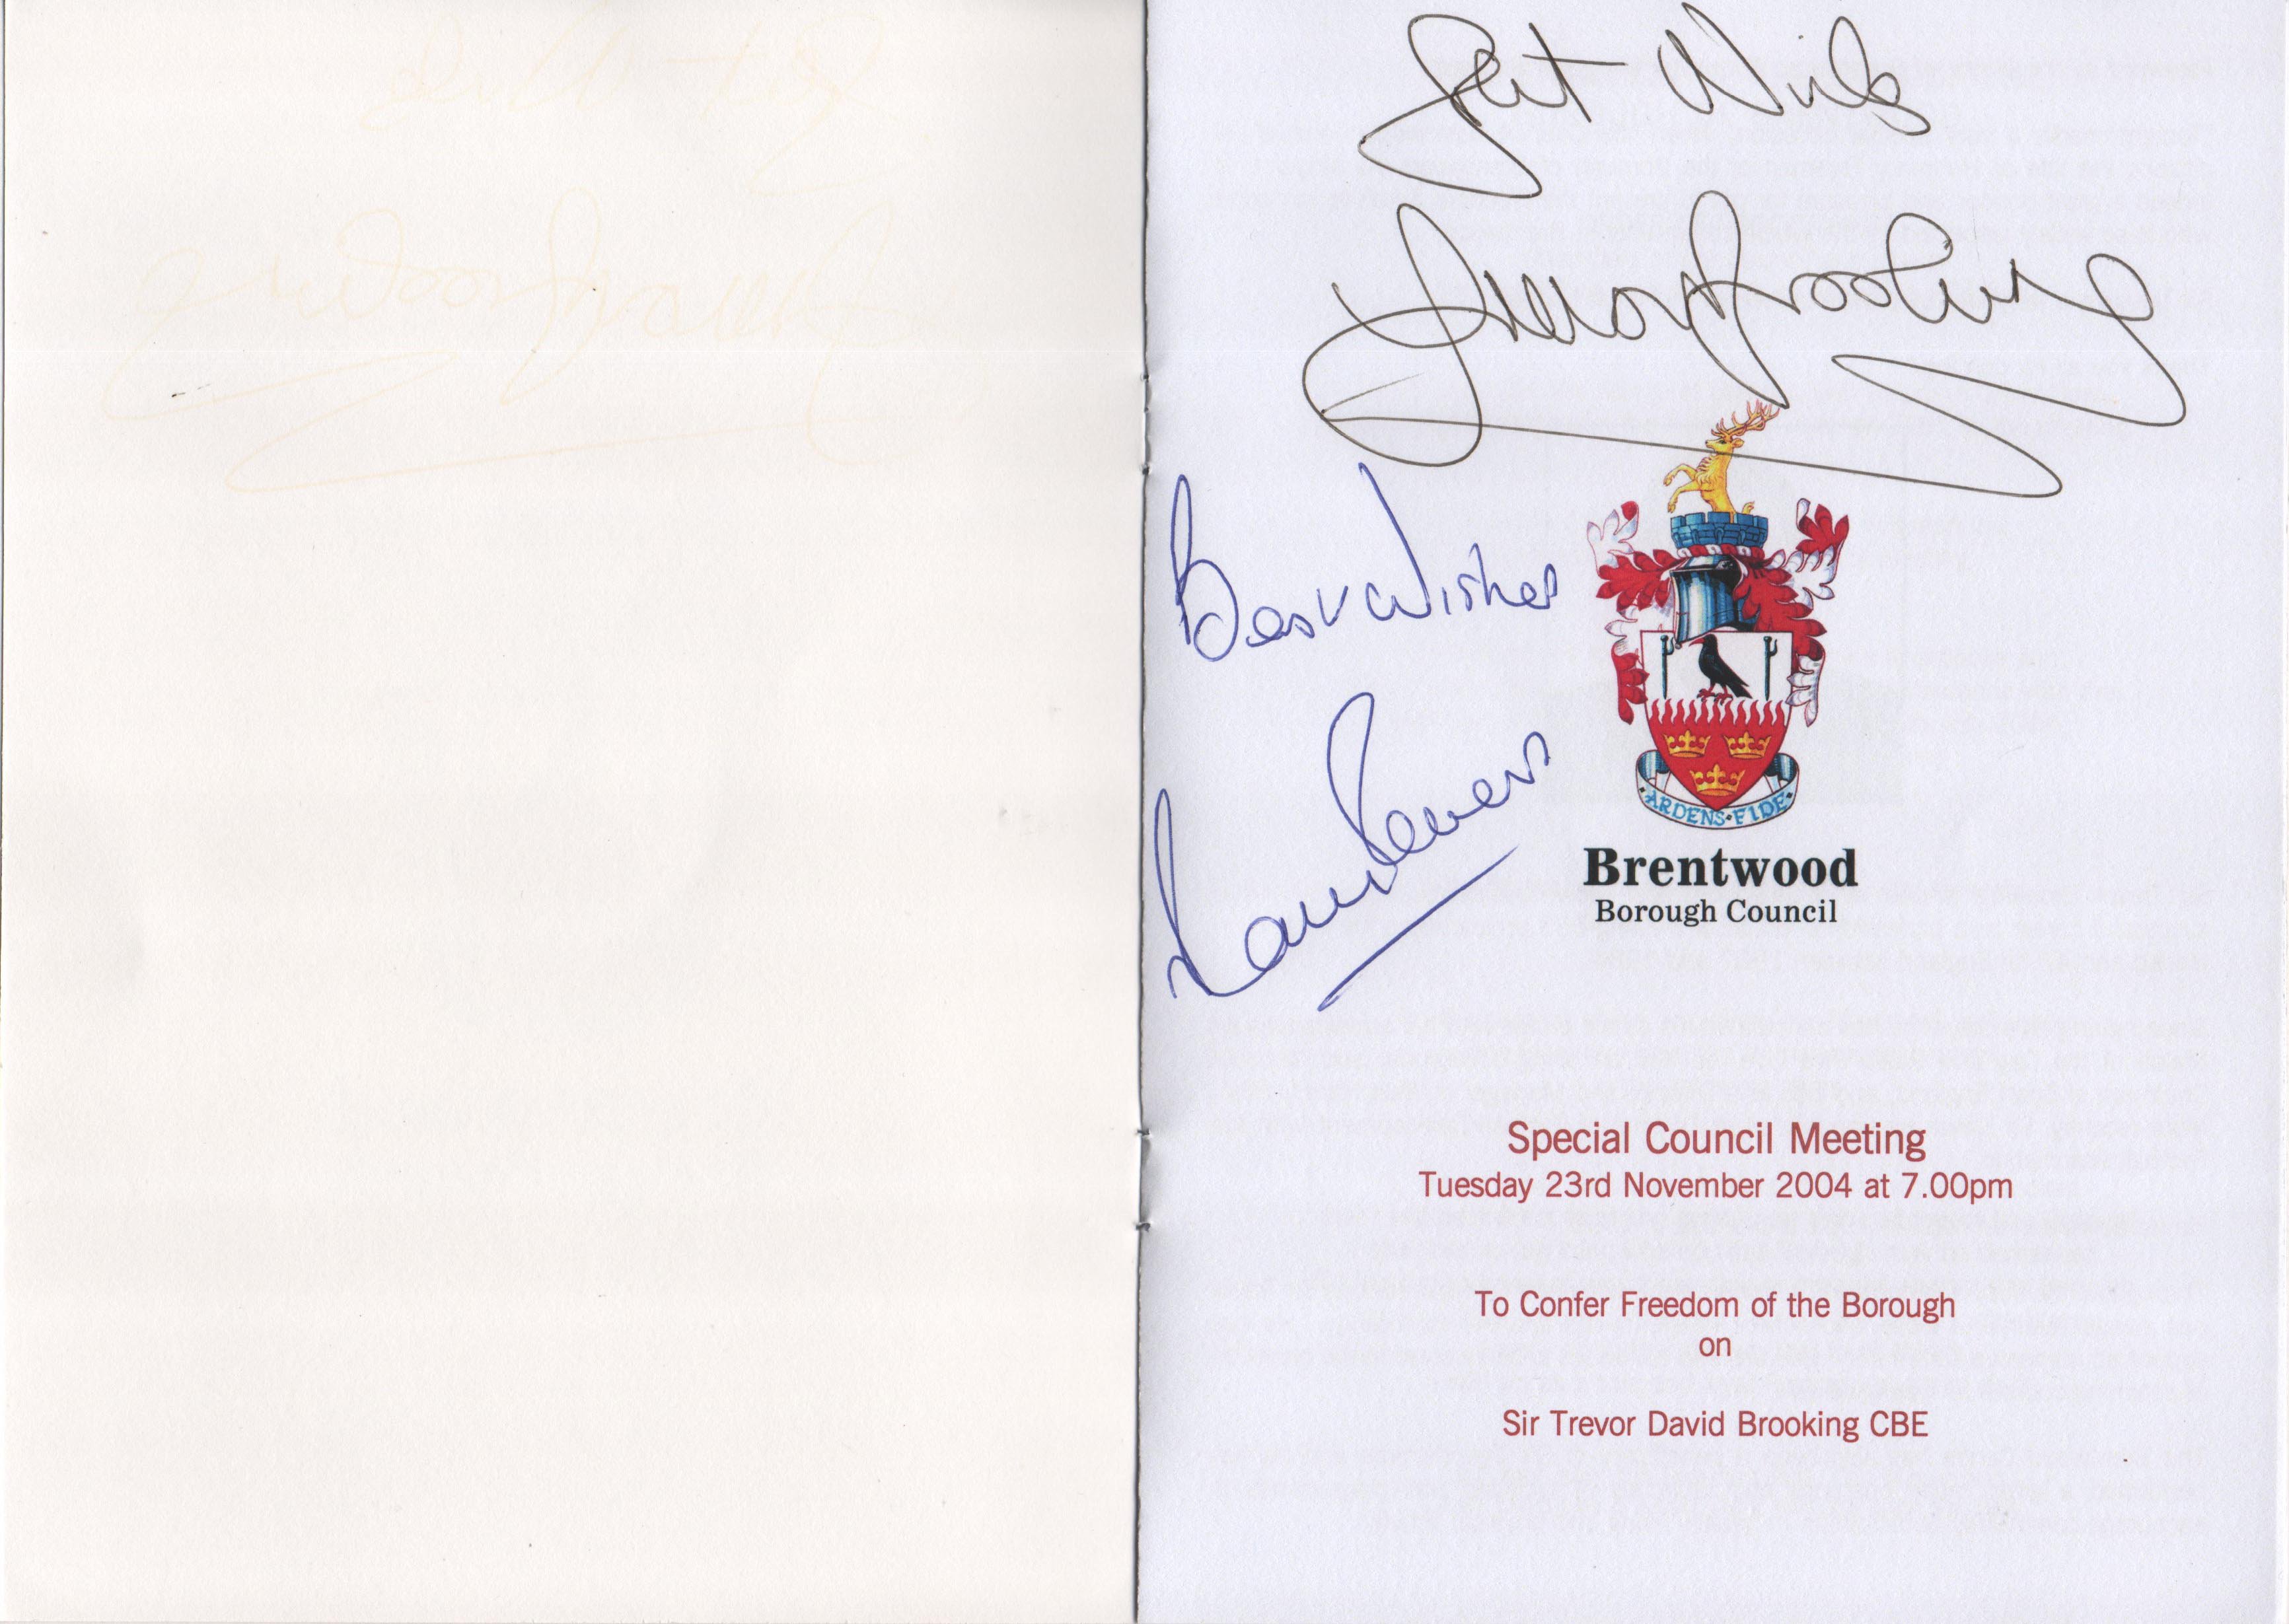 Best Wishes
Trevor Brooking
Best Wishes
ARDENS·FIDE
Brentwood
Borough Council
Special Council Meeting
Tuesday 23rd November 2004 at 7.00pm
To Confer Freedom of the Borough
on
Sir Trevor David Brooking CBE